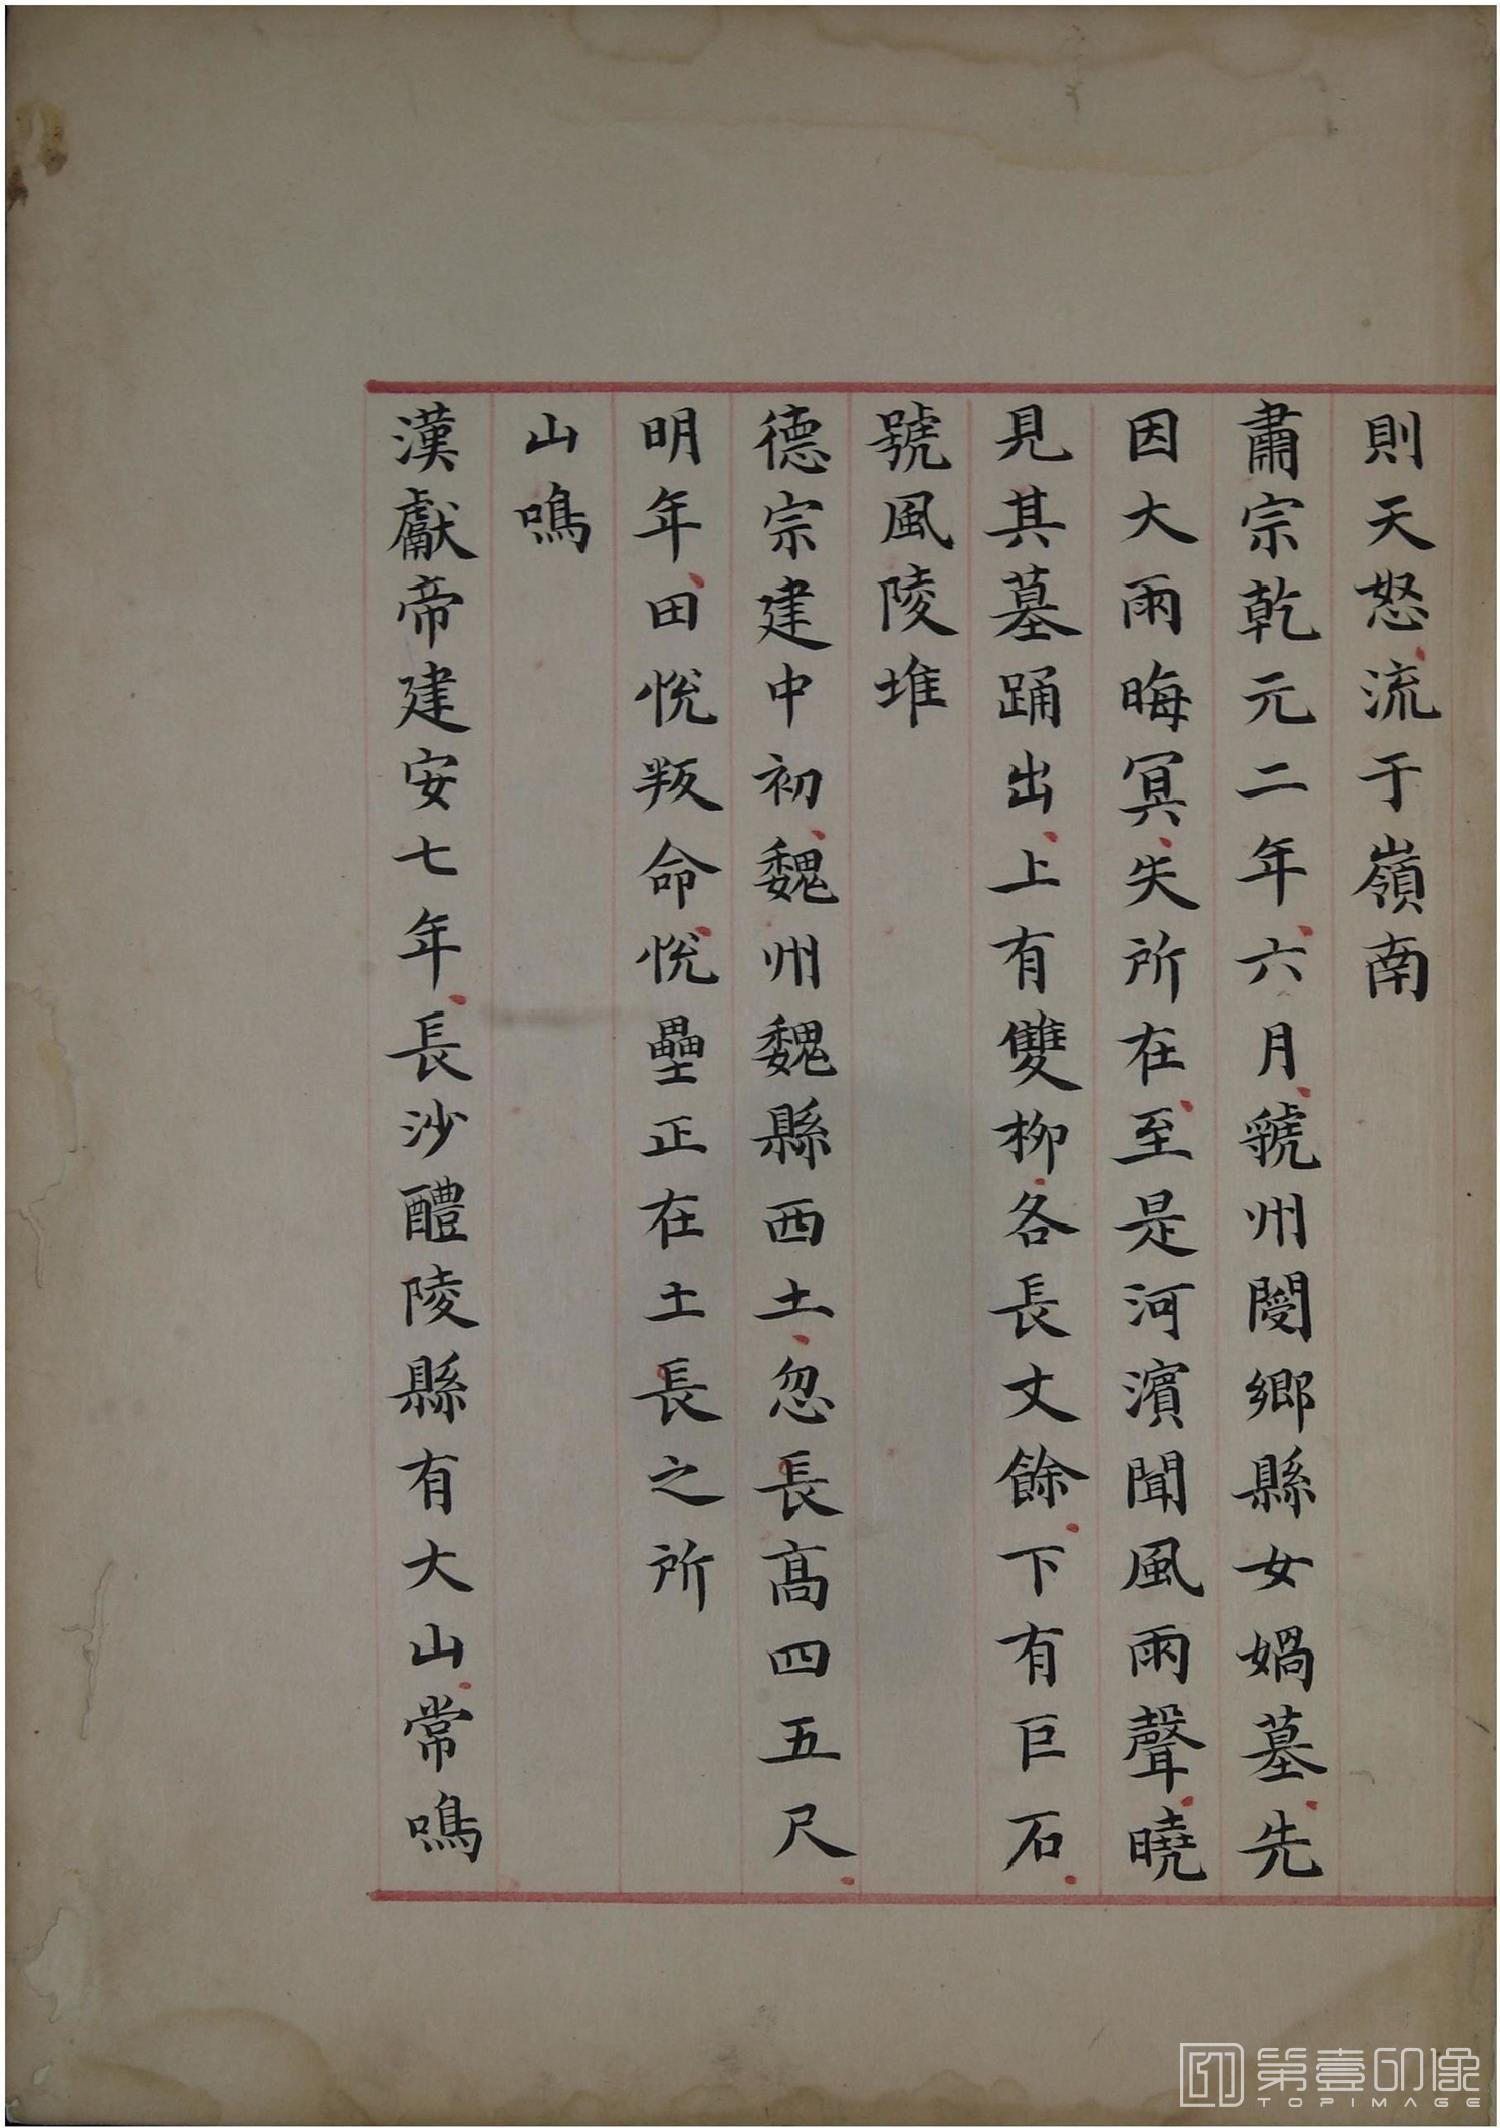 則天怒流于嶺南
肅宗乾元二年六月虢州閿鄉縣女媧墓先
因大雨晦冥失所在至是河濱聞風雨聲曉
見其墓踊出上有雙柳各長丈餘下有巨石
號風陵堆
德宗建中初魏州魏縣西土忽長高四五尺
明年田悅叛命悅壘正在土長之所
山鳴
漢獻帝建安七年長沙醴陵縣有大山常鳴
第壹印像
TOPIMAGE